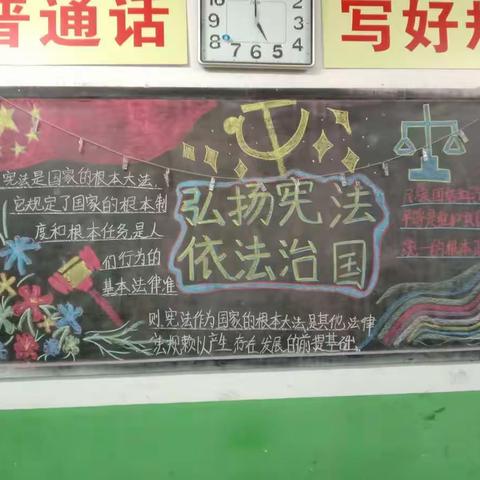 普通话
写好规
宪法是国家的根本大法,
它规定了国家的根本制
度和根本任务是人
们行为的
基本法律准
则,宪法作为国家的根本大法,是其他法律
法规赖以产生存在发展的前提基础
弘扬宪法
依法治国
统一的根本
12
11
10
9
8
7
6
5
4